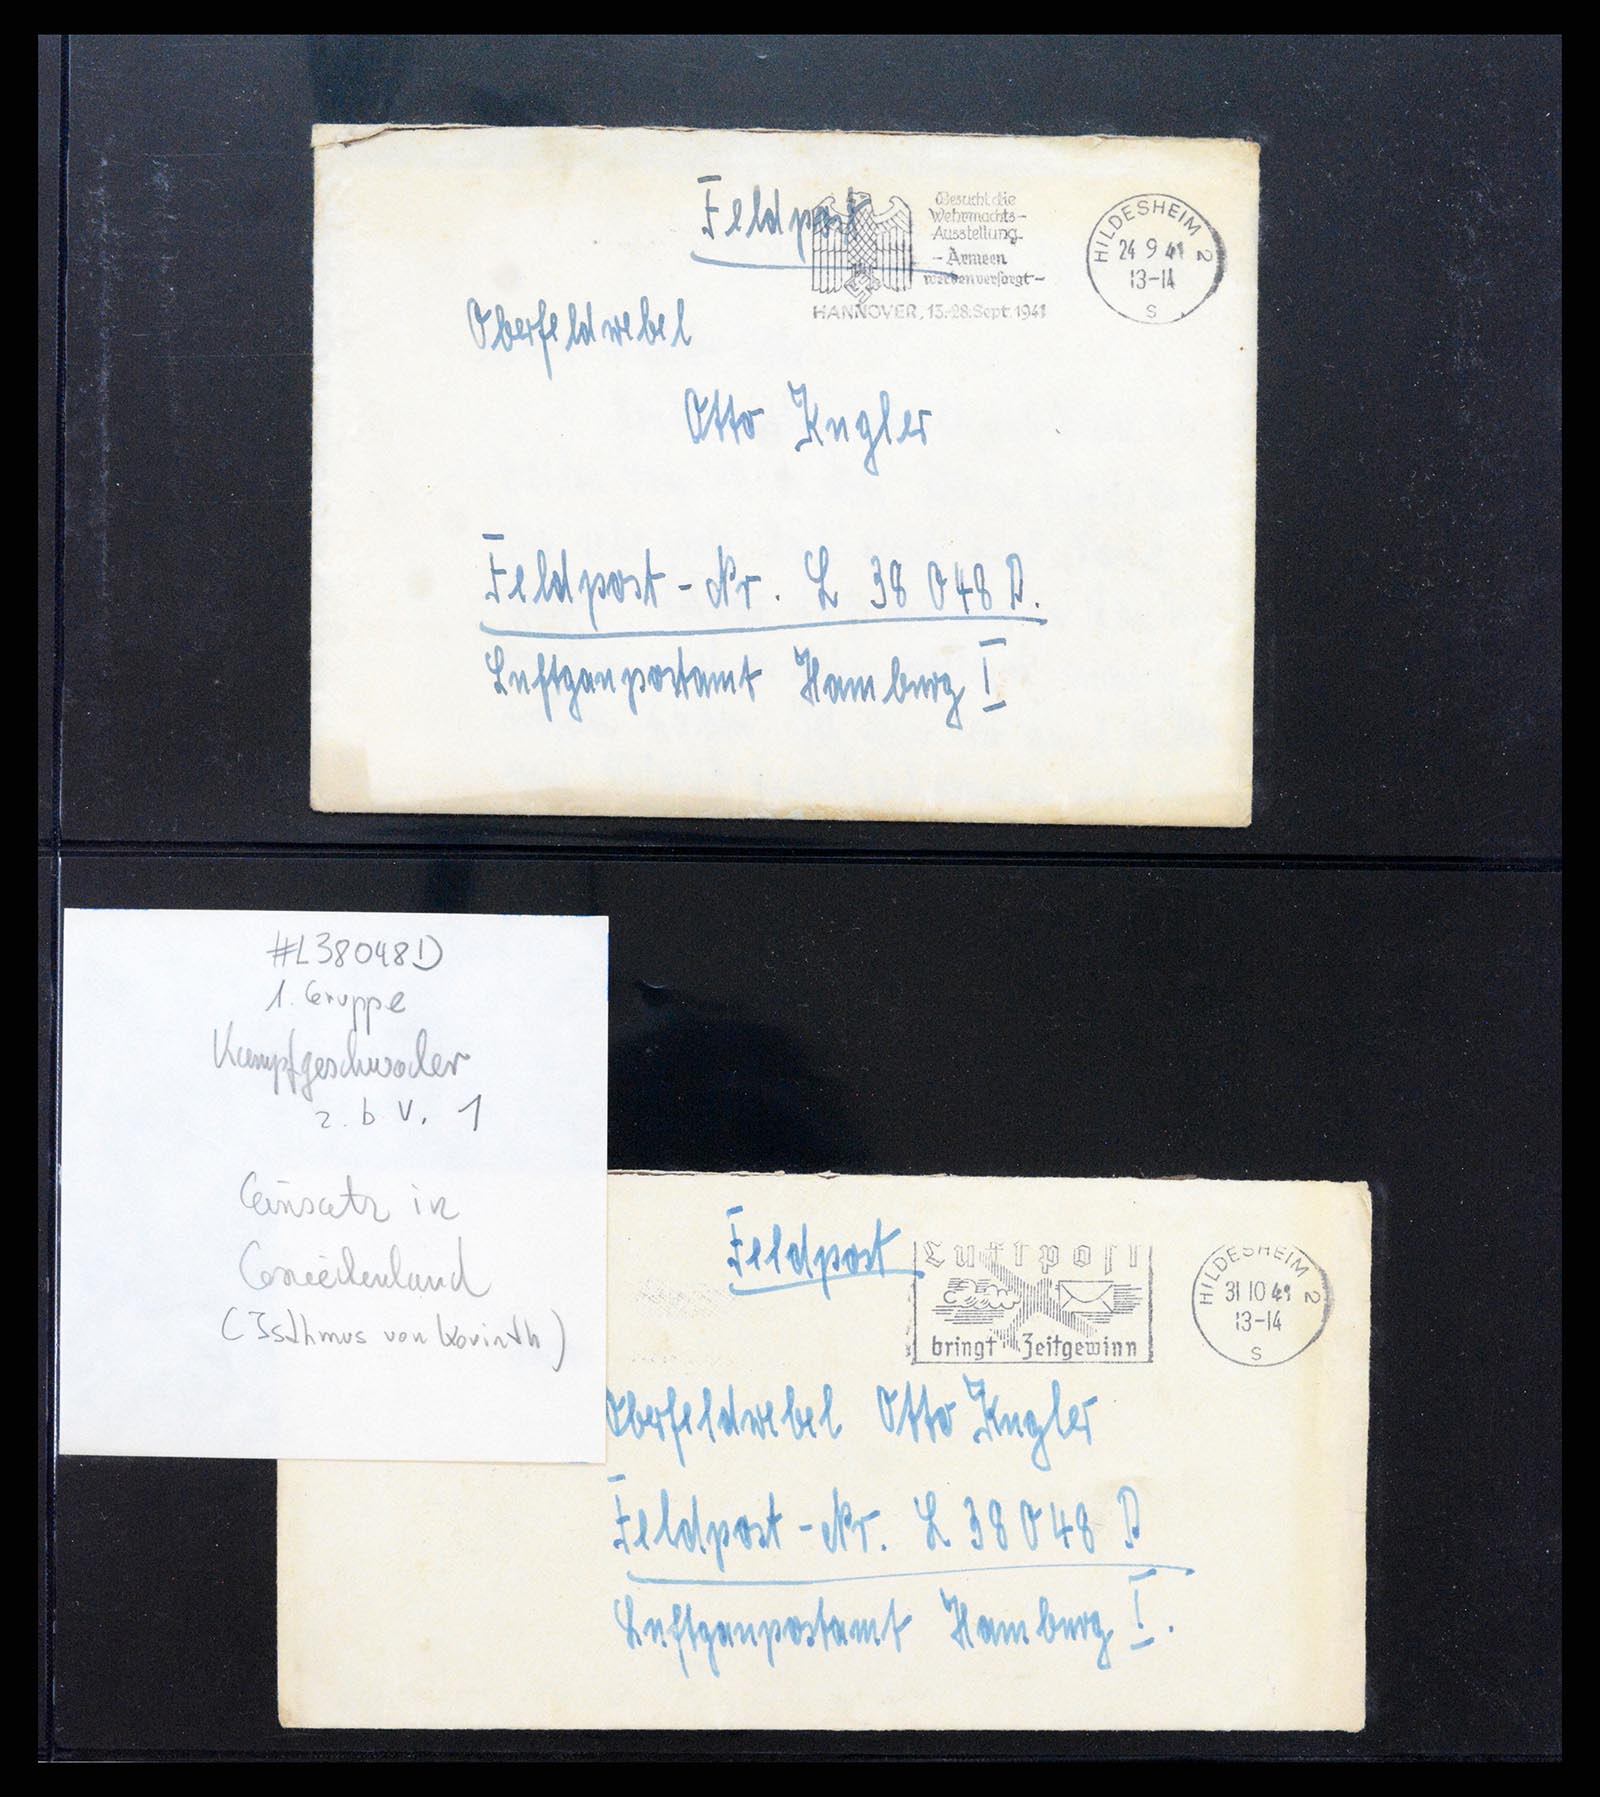 Feldpost
Besucht die
Wehrmachts-
Ausstellung
- Armeen
werden versorgt -
HANNOVER, 13.-28. Sept. 1941
HILDESHEIM 2
24 9 41
13-14
s
Oberfeldwebel
Otto Kugler
Feldpost - Nr. L 38 048 D.
Luftgaupostamt Hamburg I
#L38048D
1. Gruppe
Kampfgeschwader
z. b V. 1
Einsatz in
Griechenland
(Isthmus von Korinth)
Feldpost
Luftpost
bringt Zeitgewinn
HILDESHEIM 2
31 10 41
13-14
s
Oberfeldwebel Otto Kugler
Feldpost - Nr. L 38 048 D
Luftgaupostamt Hamburg I.